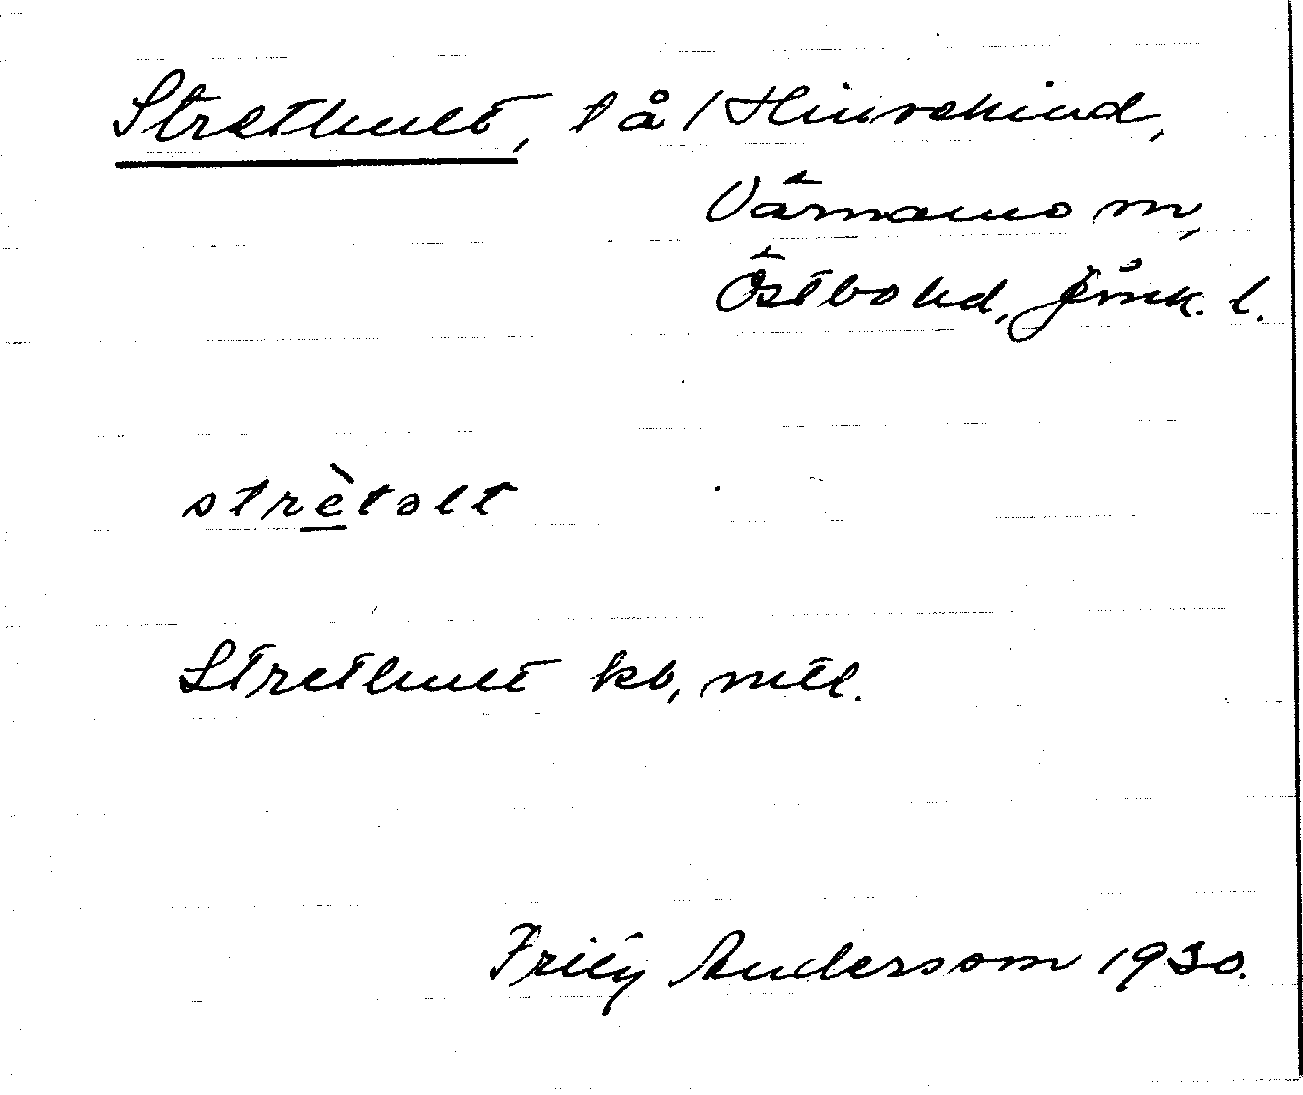 Strethult, lå / Hinrekind,
Värnamo m,
Östbo hd, Jönk. l.
strètolt
Strethult kb, mtl.
Andersson 1930.